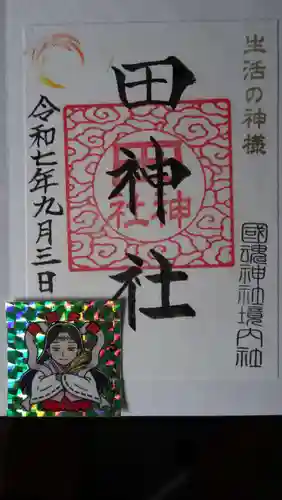 生活の神様
田神社
田中神社
國魂神社境内社
令和七年九月三日